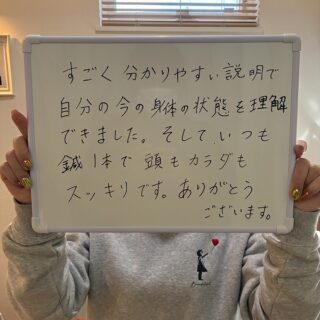 すごく 分かりやすい説明で
自分の今の身体の状態を理解
できました。そして、いつも
鍼1本で 頭もカラダも
スッキリです。ありがとう
ございます。